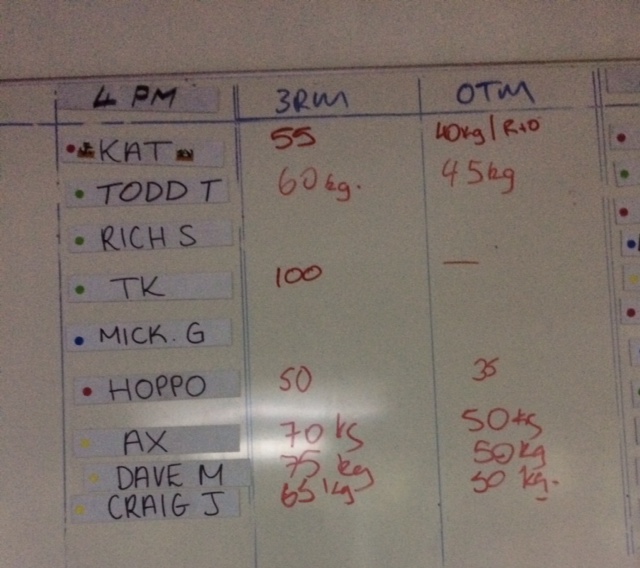 4 PM 3RM OTM
KAT 55 40kg/Rxd
TODD T 60kg. 45kg
RICH S
TK 100 —
MICK. G
HOPPO 50 35
AX 70 kg 50kg
DAVE M 75 kg 50kg
CRAIG J 65kg 50 kg.